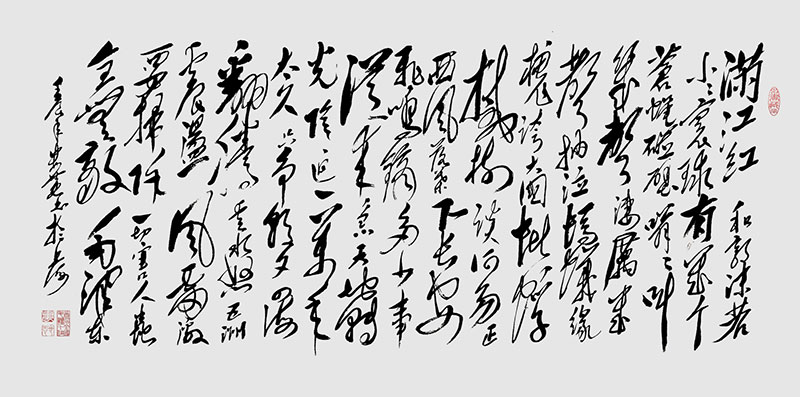 满江红 和郭沫若
小小寰球有几个
苍蝇碰壁嗡嗡叫
几声凄厉几
声抽泣蚂蚁缘
槐夸大国蚍蜉
撼树谈何易正
西风落叶下长安
飞鸣镝多少事
从来急天地转
光阴迫一万年
太久只争朝夕四海
翻腾云水怒五洲
震荡风雷激
要扫除一切害人虫
全无敌 毛泽东
壬辰年 书于上海